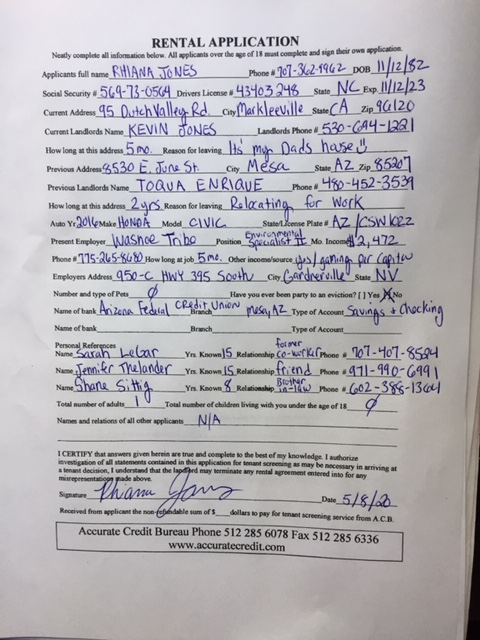 RENTAL APPLICATION
Neatly complete all information below. All applicants over the age of 18 must complete and sign their own application.
Applicants full name RHIANA JONES Phone # DOB 11/12/82
Social Security # Drivers License # 43403248 State NC Exp. 11/12/23
Current Address 95 Dutch Valley Rd. City Markleeville State CA Zip 96120
Current Landlords Name KEVIN JONES Landlords Phone # 530-694-1221
How long at this address 5 mo. Reason for leaving Its my Dads house
Previous Address 8530 E. June St. City Mesa State AZ Zip 85207
Previous Landlords Name TOQUA ENRIQUE Phone # 480-452-3539
How long at this address 2 yrs Reason for leaving Relocating for Work
Auto Yr 2016 Make HONDA Model CIVIC State/License Plate # AZ/
Present Employer Washoe Tribe Position Environmental Specialist II Mo. Income $ 2,472
Phone # 775-265-8680 How long at job 5 mo. Other income/source yes/gaming per capita
Employers Address 950-C HWY 395 South City Gardnerville State NV
Number and type of Pets 0 Have you ever been party to an eviction? [ ] Yes [X] No
Name of bank Arizona Federal Credit Union Branch mesa, AZ Type of Account Savings + Checking
Name of bank Branch Type of Account
Personal References
Name Sarah LeGar Yrs. Known 15 Relationship former co-worker Phone # 707-407-8524
Name Jennifer Thelander Yrs. Known 15 Relationship friend Phone # 971-990-6991
Name Shane Sittig Yrs. Known 8 Relationship Brother in-law Phone #
Total number of adults 1 Total number of children living with you under the age of 18 0
Names and relations of all other applicants N/A
I CERTIFY that answers given herein are true and complete to the best of my knowledge. I authorize
investigation of all statements contained in this application for tenant screening as may be necessary in arriving at
a tenant decision, I understand that the landlord may terminate any rental agreement entered into for any
misrepresentation made above.
Signature Rhiana Jones Date 5/8/20
Received from applicant the non-refundable sum of $ dollars to pay for tenant screening service from A.C.B.
Accurate Credit Bureau Phone 512 285 6078 Fax 512 285 6336
www.accuratecredit.com